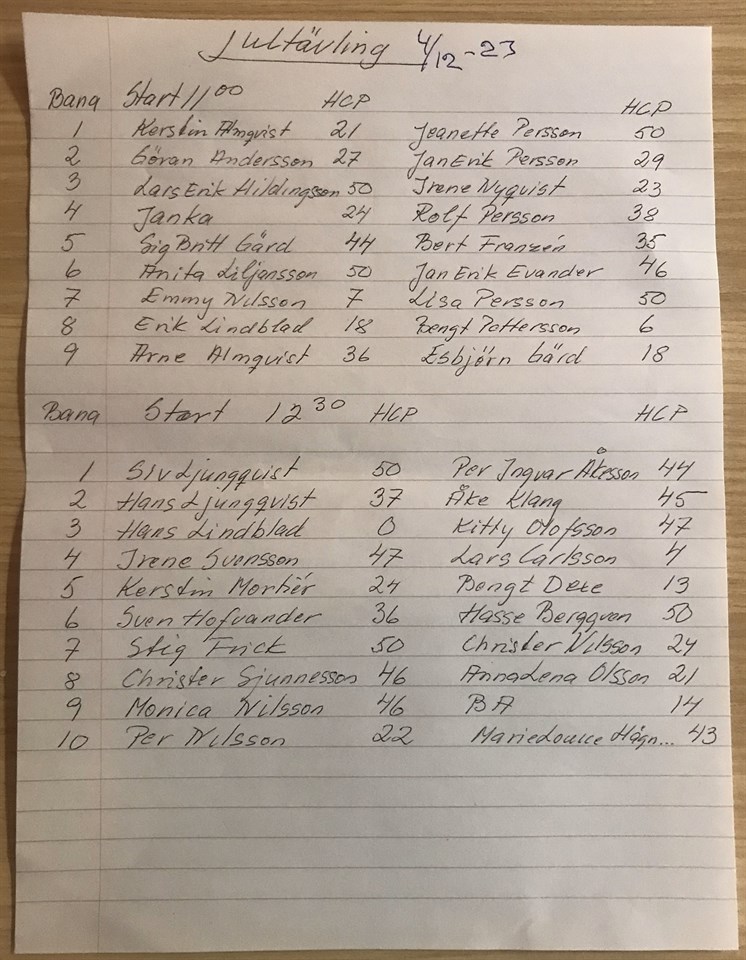 Jultävling 4/12-23
Bana Start 11 00 HCP HCP
1 Kerstin Almqvist 21 Jeanette Persson 50
2 Göran Andersson 27 Jan Erik Persson 29
3 Lars Erik Hildingsson 50 Irene Nyqvist 23
4 Janka 24 Rolf Persson 38
5 Sig Britt Gärd 44 Bert Franzén 35
6 Anita Liljansson 50 Jan Erik Evander 46
7 Emmy Nilsson 7 Lisa Persson 50
8 Erik Lindblad 18 Bengt Pettersson 6
9 Arne Almqvist 36 Esbjörn Gärd 18
Bana Start 12 30 HCP HCP
1 Siv Ljungqvist 50 Per Ingvar Åkesson 44
2 Hans Ljungqvist 37 Åke Klang 45
3 Hans Lindblad 0 Kitty Olofsson 47
4 Irene Svensson 47 Lars Carlsson 4
5 Kerstin Mortier 24 Bengt 13
6 Sven Hofvander 36 Hasse Berggren 50
7 Stig Frick 50 Christer Nilsson 24
8 Christer Sjunnesson 46 AnnaLena Olsson 21
9 Monica Nilsson 46 BA 14
10 Per Nilsson 22 MarieLouise Hägn... 43